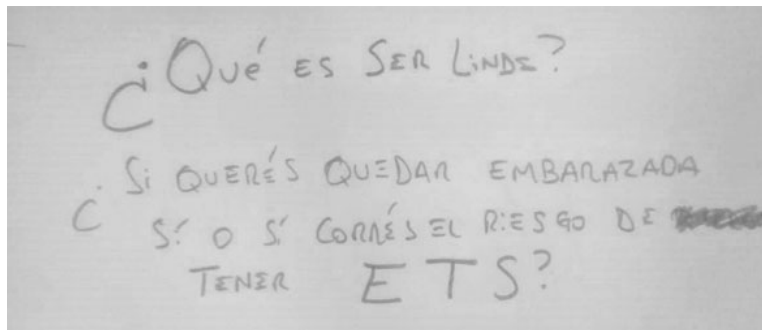 ¿Qué es SER LINDE?
¿Si QUERÉS QUEDAR EMBARAZADA
SÍ O SÍ CORRÉS EL RIESGO DE
TENER ETS?